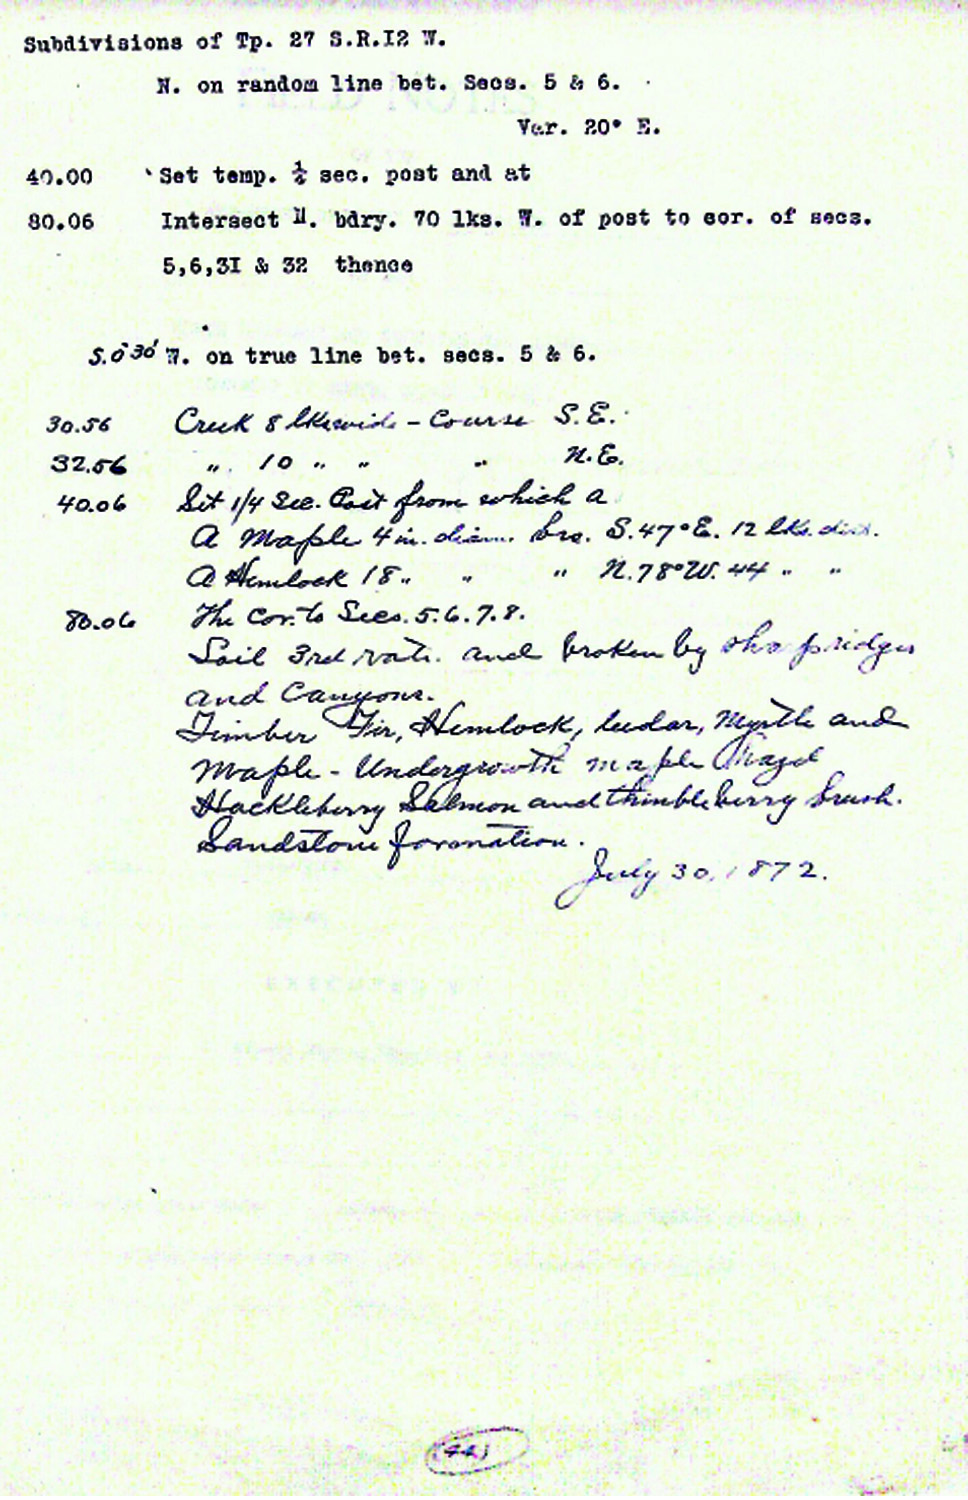 Subdivisions of Tp. 27 S.R.I2 W.
N. on random line bet. Secs. 5 & 6.
Var. 20° E.
40.00 Set temp. ¼ sec. post and at
80.06 Intersect N. bdry. 70 lks. W. of post to cor. of secs.
5,6,3I & 32 thence
S.0°30' W. on true line bet. secs. 5 & 6.
30.56 Creek 8 lks wide - Course S.E.
32.56 " 10 " " " N.E.
40.06 Set 1/4 Sec. Post from which a
A Maple 4 in. diam. brs. S.47°E. 12 lks. dist.
A Hemlock 18 " " " N.78°W. 44 " "
80.06 The Cor. to Secs. 5.6.7.8.
Soil 3rd rate. and broken by sharp ridges
and Canyons.
Timber Fir, Hemlock, Cedar, Myrtle and
Maple - Undergrowth maple Hazel
Huckleberry Salmon and thimbleberry brush.
Sandstone formation.
July 30, 1872.
(44)